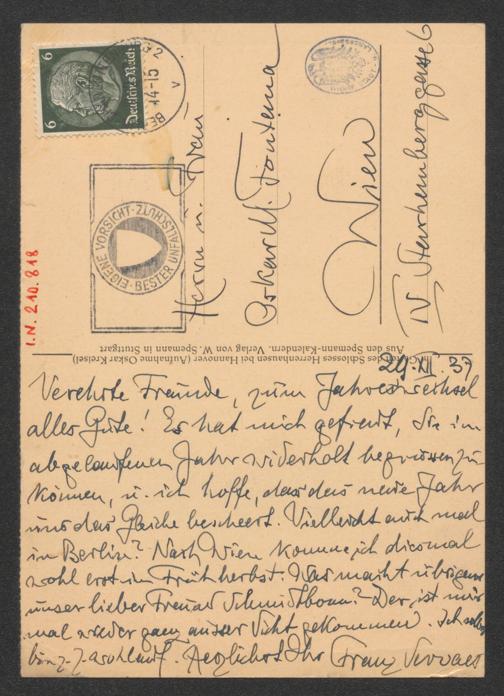 6 6
Deutsches Reich
14-15
V
EIGENE VORSICHT - BESTER UNFALLSCHUTZ
I.N. 210.818
Herrn u. Frau
Oskar M. Fontana
Wien
IV Starhemberggasse 6
des Schlosses Herrenhausen bei Hannover (Aufnahme Oskar Kreisel)
Aus den Spemann-Kalendern. Verlag von W. Spemann in Stuttgart
29.XII.37
Verehrte Freunde, zum Jahreswechsel
alles Gute! Es hat mich gefreut, Sie im
abgelaufenen Jahr widerholt begrüssen zu
können, u. ich hoffe, dass das neue Jahr
uns das Gleiche bescheert. Vielleicht auch mal
in Berlin? Nach Wien komme ich diesmal
wohl erst im Frühherbst. Was macht übrigens
unser lieber Freund Schmidtbonn? Der ist mir
mal wieder ganz ausser Sicht gekommen. Ich
bin z. Z. wohlauf. Herzlichst Ihr Franz Servaes